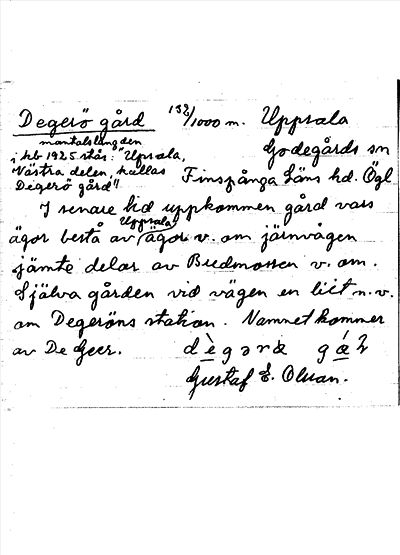 Degerö gård 132/1000 m. Uppsala
mantalslängden
i hb 1925 står: Upsala, Godegårds sn
Västra delen, kallas
Degerö gård" Finspånga läns hd. Ögl
I senare tid uppkommen gård vars
ägor bestå av Uppsala ägor v. om järnvägen
jämte delar av Budmossen v. om.
Själva gården vid vägen en bit n.v.
om Degeröns station. Namnet kommer
av De Geer. dègəræ gǽ
Gustaf E. Olsson.